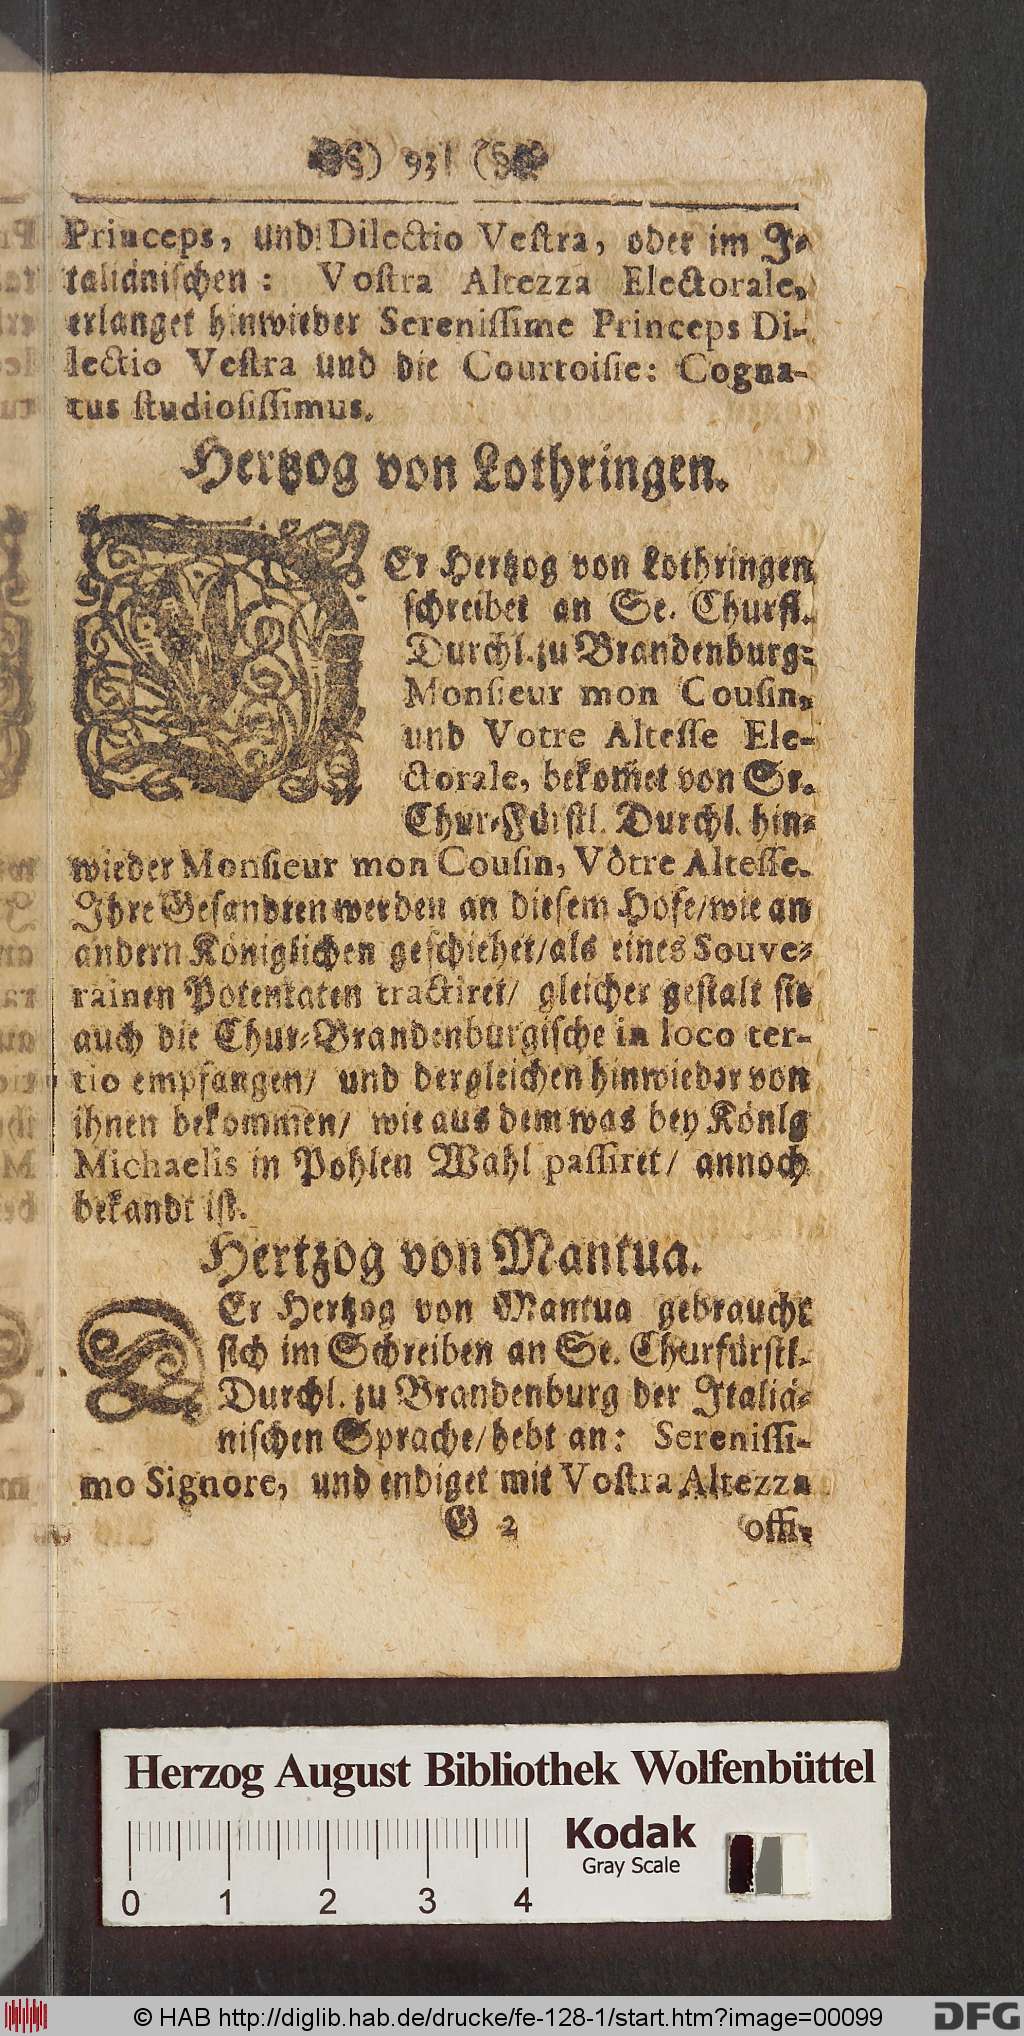 ) 93 (
Princeps, und Dilectio Vestra, oder im J-
taliänischen: Vostra Altezza Electorale,
erlanget hinwieder Serenissime Princeps Di-
lectio Vestra und die Courtoisie: Cogna-
tus studiosissimus.
Hertzog von Lothringen.
DEr Hertzog von Lothringen
schreibet an Se. Churfl.
Durchl. zu Brandenburg:
Monsieur mon Cousin,
und Votre Altesse Ele-
ctorale, bekom̃et von Sr.
Chur-Fürstl. Durchl. hin-
wieder Monsieur mon Cousin, Vòtre Altesse.
Ihre Gesandten werden an diesem Hofe/wie an
andern Königlichen geschiehet/als eines Souve-
rainen Potentaten tractiret/ gleicher gestalt sie
auch die Chur-Brandenburgische in loco ter-
tio empfangen/ und dergleichen hinwieder von
ihnen bekommen/ wie aus dem was bey König
Michaelis in Pohlen Wahl passiret/ annoch
bekandt ist.
Hertzog von Mantua.
DEr Hertzog von Mantua gebraucht
sich im Schreiben an Se. Churfürstl.
Durchl. zu Brandenburg der Italiä-
nischen Sprache/hebt an: Serenissi-
mo Signore, und endiget mit Vostra Altezza
G 2 offi-
Herzog August Bibliothek Wolfenbüttel
Kodak
Gray Scale
0 1 2 3 4
© HAB http://diglib.hab.de/drucke/fe-128-1/start.htm?image=00099
DFG